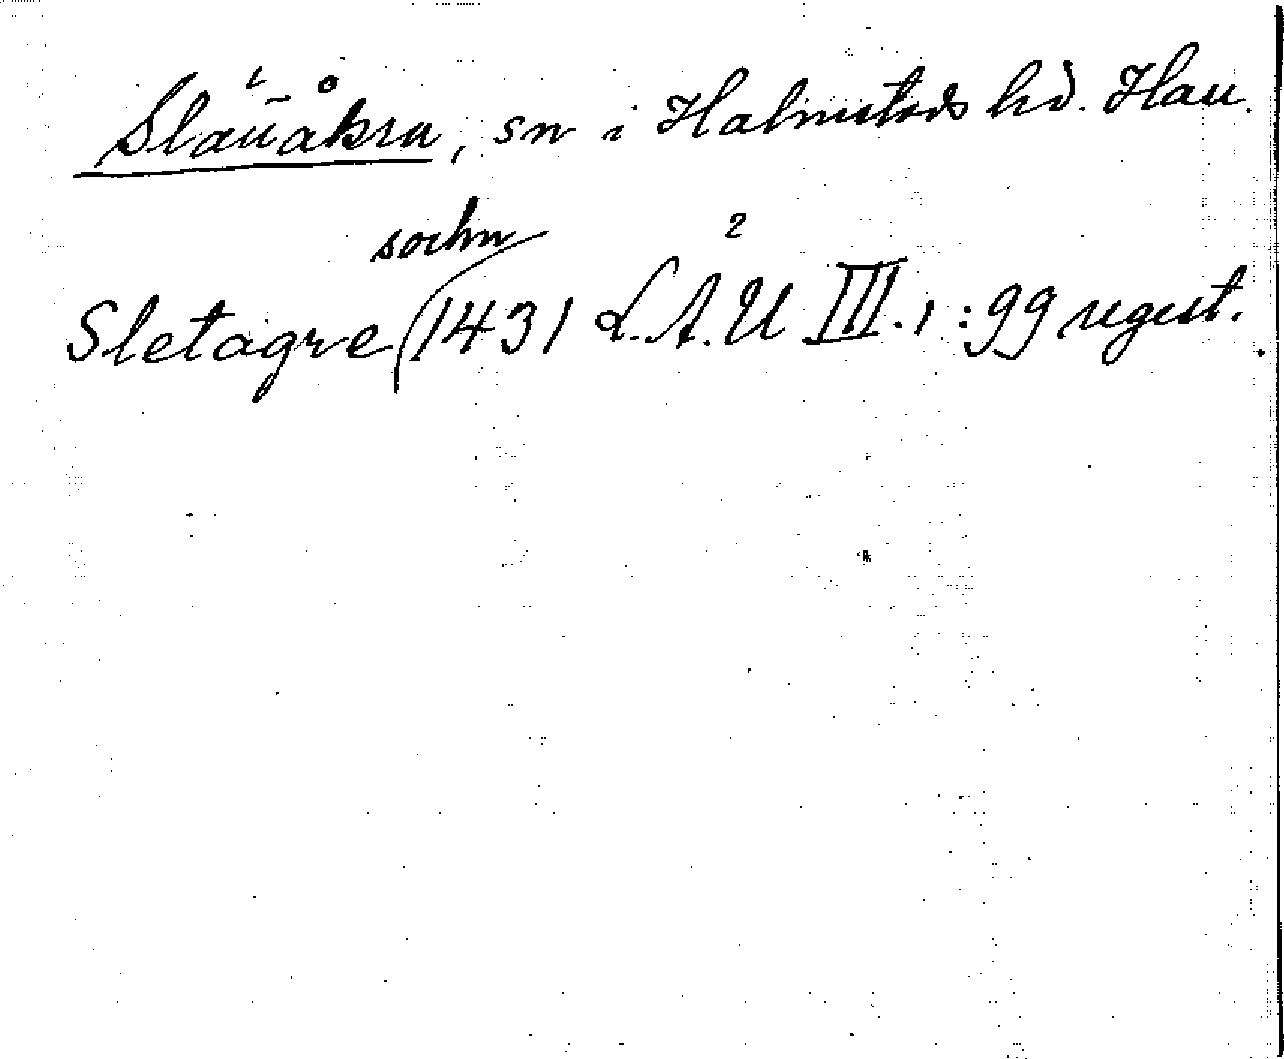 Slättåkra, sn i Halmstads hd. Hall.
sochn 2
Sletagre (1431 L.A.U III.1 :99 regest.